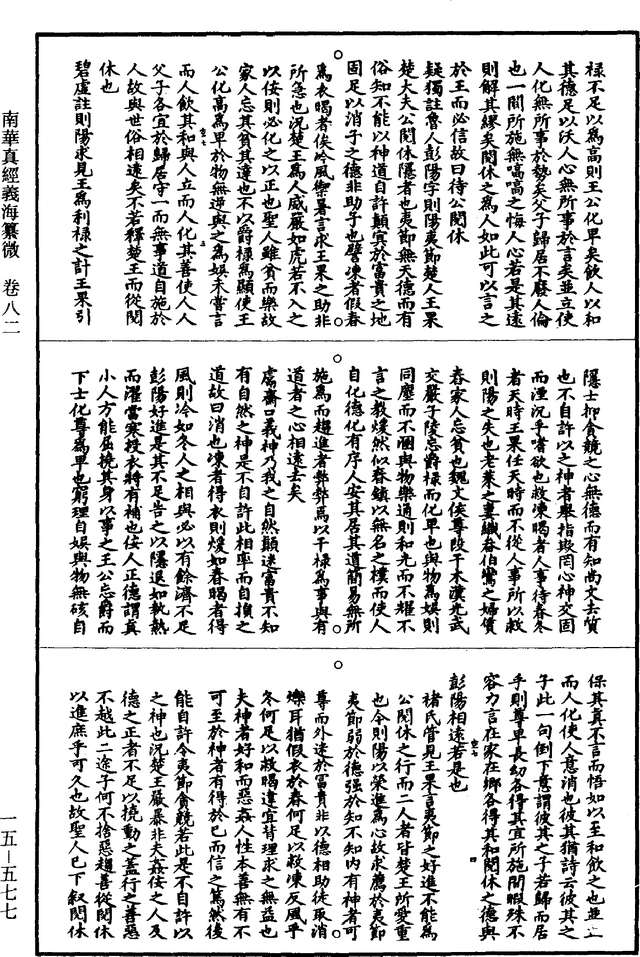 祿不足以爲高則王公化卑矣飲人以和
其德足以沃人心無所事於言矣並立使
人化無所事於勢矣父子歸居不廢人倫
也一閒所施無嗃嗃之悔人心若是其遠
則解其繆矣閱休之爲人如此可以言之
於王而必信故曰待公閱休
疑獨註魯人彭陽字則陽夷節楚人王果
楚大夫公閱休隱者也夷節無天德而有
俗知不能以神道自許顛冥於富貴之地
固足以消子之德非助子也譬凍者假春
爲衣暍者俟冷風禦暑言求王果之助非
所急也況楚王爲人威嚴如虎若不入之
以佞則必化之以正也聖人雖貧而樂故
家人忘其貧其達也不以爵祿爲顯使王
公化高爲卑於物無逆與之爲娛未嘗言
而人飲其和與人立而人化其善使人人
父子各宜於歸居守一而無事道自施於
人故與世俗相遠矣不若釋楚王而從閱
休也
碧虛註則陽求見王爲利祿之計王果引
隱士抑貪競之心無德而有知尚文去質
也不自許以之神者舉指欺罔心神交固
而湮沉乎嗜欲也故凍暍者人事待春冬
者天時王果任天時而不從人事所以救
則陽之失也老萊之妻織畚伯鸞之婦賃
舂家人忘貧也魏文侯尊段干木漢光武
交嚴子陵忘爵祿而化卑也與物爲娛則
同塵而不溷與物樂通則和光而不耀不
言之教煖然似春鎮以無名之樸而使人
自化德化有序人安其居其道簡易無所
施爲而趨進者弊弊焉以干祿爲事與有
道者之心相遠去矣
鬳齋口義神乃我之自然顛迷富貴不知
有自然之神是不自許此相率而自損之
道故曰消也凍者得衣則煖如春暍者得
風則冷如冬人之相與必以有餘濟不足
彭陽好進是其不足告之以隱退如執熱
而濯當寒投衣將有補也佞人正德謂真
小人方能屈撓其身以事之王公忘爵而
下士化尊爲卑也窮理自娛與物無礙自
保其真不言而悟如以至和飲之也並立
而人化使人意消也彼其猶詩云彼其之
子此一句倒下意謂彼其之子若歸而居
乎則尊卑長幼各得其宜所施閒暇殊不
容力言在家在鄉各得其和閱休之德與
彭陽相遠若是也
褚氏管見王果言夷節之好進不能爲
公閱休之行而二人者皆楚王所愛重
也令則陽以榮進爲心故求薦於夷節
夷節弱於德強於知不知內有神者可
尊而外迷於富貴非以德相助徒取消
爍耳猶假衣於春何足以救凍反風乎
冬何足以救暍違宜背理求之無益也
夫神者好和而惡姦人性本善無有不
可至於神者有得於己而信之篤然後
能自許今夷節貪競若此是不自許以
之神也況楚王嚴暴非夫姦佞之人及
德之正者不足以撓動之蓋行之善惡
不越此二途子何不捨惡趨善從閱休
以進庶乎可久也故聖人已下叙閱休
南華真經義海纂微　卷八二
一五—五七七